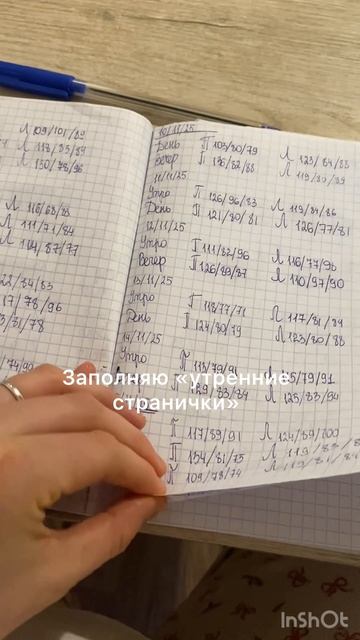 Л 109/101/89
Л 117/83/84
Л 130/78/96
Л 116/68/88
Л 111/71/84
Л 104/87/77
22/84/83
17/78/96
3/81/78
74/90
10/11/25
День П 103/80/79 Л 123/84/88
Вечер П 136/82/88 Л 119/80/89
11/11/25
Утро П 126/96/83 Л 119/84/86
День П 121/80/81 Л 126/77/81
12/11/25
Утро П 111/82/96 Л 116/77/96
Вечер П 126/89/87 Л 110/97/90
13/11/25
Утро П 118/77/71 Л 117/81/84
День П 124/80/79 Л 123/80/88
14/11/25
Утро П 113/79/91 /79/91
129/83/84 Л 125/83/94
Заполняю «утренние
странички»
П 117/89/91 Л 124/89/100
П 134/81/75 Л 119/83/8
П 109/78/74 Л 119/81/8
InShOt